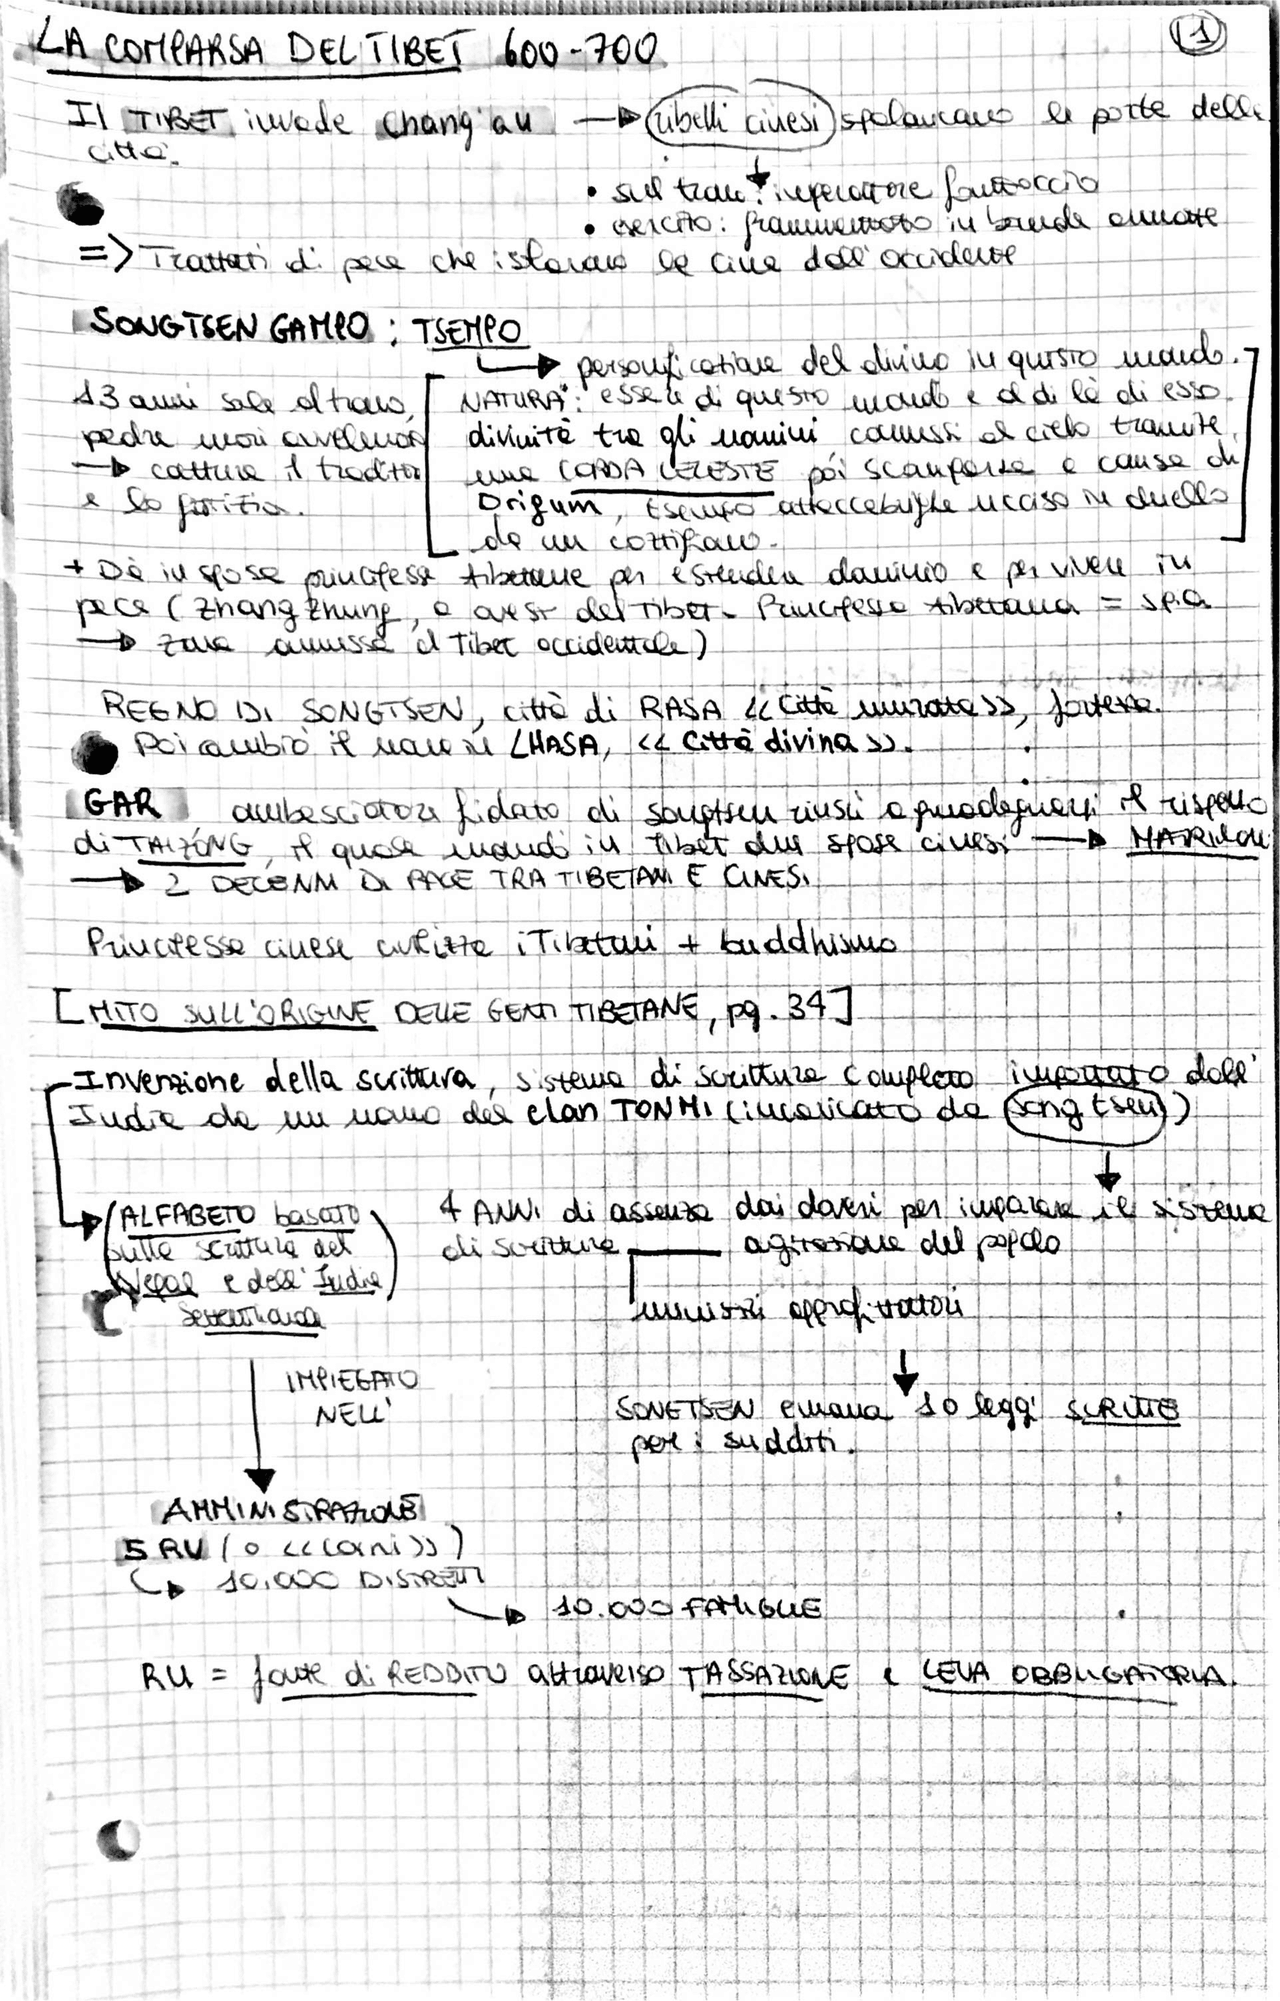 1
LA COMPARSA DEL TIBET 600-700
Il TIBET invade Chang'an → ribelli cinesi spalancano le porte della
città.
• sul trono: imperatore fantoccio
• esercito: frammentato in bande armate
=> Trattati di pace che isolarono la Cina dall'occidente
SONGTSEN GAMPO : TSEMPO
→ personificazione del divino in questo mondo.
13 anni sale al trono,
padre morì avvelenato
→ cattura il traditore
e lo giustizia.
[NATURA: essere di questo mondo e al di là di esso.
divinità tra gli uomini connessi al cielo tramite
una CORDA CELESTE poi scomparsa a causa di
Drigum, tsempo attaccabrighe ucciso in duello
da un cortigiano.]
+ Dà in spose principesse tibetane per estendere dominio e per vivere in
pace (Zhangzhung, a ovest del Tibet. Principessa tibetana = spia
→ zona annessa al Tibet occidentale)
REGNO DI SONGTSEN, città di RASA <<Città murata>>, fortezza.
Poi cambiò il nome in LHASA, <<Città divina>>.
GAR ambasciatore fidato di Songtsen riuscì a guadagnarsi il rispetto
di TAIZONG, il quale mandò in Tibet due spose cinesi →
→ 2 DECENNI DI PACE TRA TIBETANI E CINESI
Principessa cinese civilizza i Tibetani + buddhismo
[MITO SULL'ORIGINE DELLE GENTI TIBETANE, pg. 34]
Invenzione della scrittura, sistema di scrittura completo importato dall'
India da un uomo del clan TONMI (incaricato da Songtsen)
→ (ALFABETO basato
sulla scrittura del
Nepal e dell'India
Settentrionale)
4 ANNI di assenza dai doveri per imparare il sistema
di scrittura — agitazione del popolo
ministri approfittatori
SONGTSEN emana 10 leggi SCRITTE
per i sudditi.
IMPIEGATO
NELL'
AMMINISTRAZIONE
5 RU (o <<Corni>>)
→ 10.000 DISTRETTI
→ 10.000 FAMIGLIE
RU = fonte di REDDITO attraverso TASSAZIONE e LEVA OBBLIGATORIA.